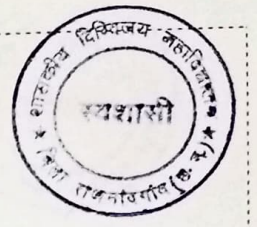 शासकीय दिग्विजय महाविद्यालय
स्वशासी
★ जिला राजनांदगाँव (छ. ग.) ★